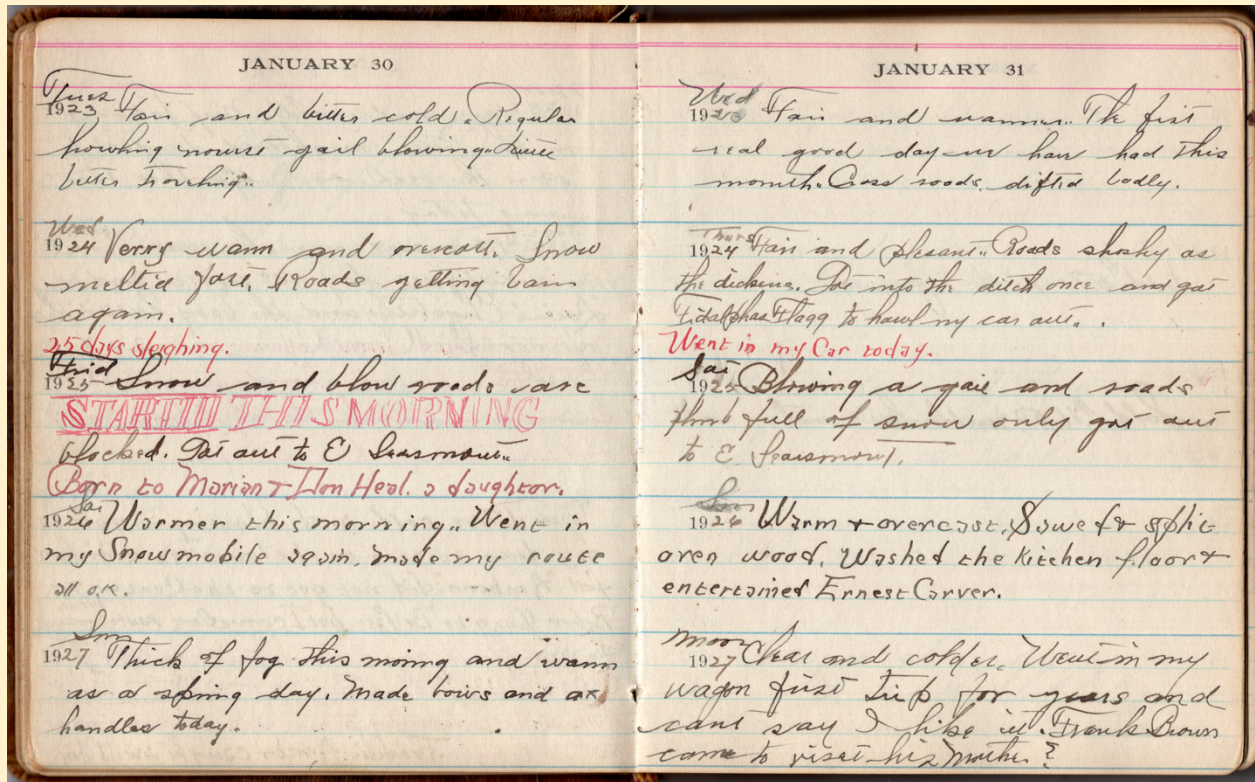 JANUARY 30
Tues
1923 Fair and bitter cold. Regular
howling nourst gail blowing.
bitter traveling..
Wed
1924 Verry warm and overcast. Snow
melted fast. Roads getting bare
again.
25 days sleighing.
Frid
1925 Snow and blow roads are
STARTIII THIS MORNING
blocked. Got out to E Searsmont..
Born to Marian & Don Heal. a daughter.
Sat
1926 Warmer this morning.. Went in
my Snowmobile again. Made my route
all o.k.
Sun
1927 Thick of fog this moing and warm
as a spring day. Made bows and ax
handles today.
JANUARY 31
Wed
1923 Fair and warmer.. The first
real good day we have had this
month. Cross roads drifted badly.
Thurs
1924 Fair and plesant.. Roads sloshy as
the dickens. Got into the ditch once and got
Flagg to hawl my car out..
Went in my Car today.
Sat
1925 Blowing a gail and roads
full of snow only got out
to E. Searsmont.
Sun
1926 Warm & overcast. Sawed & split
oven wood. Washed the kitchen floor &
entertained Ernest Carver.
Moon
1927 Clear and colder. Went in my
wagon first trip for years and
cant say I like it. Frank Brown
came to visit his Mother?